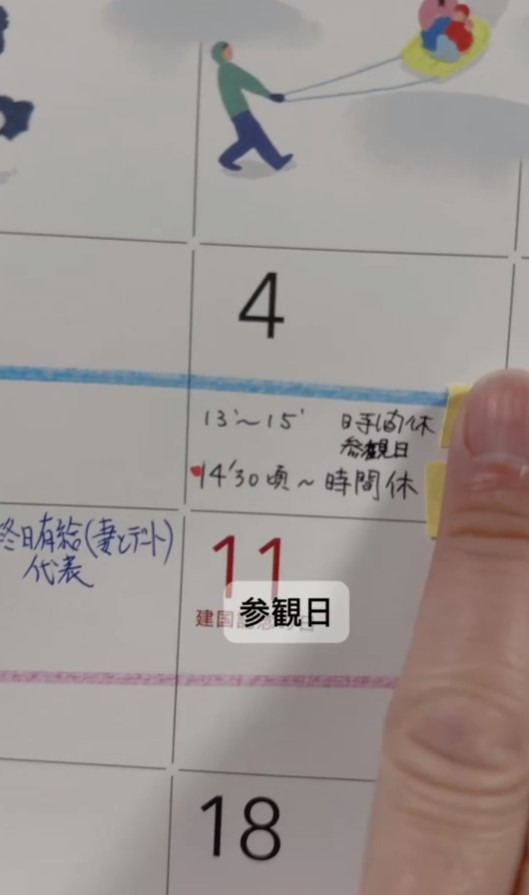 4
13'～15' 時間休
参観日
14'30頃～時間休
終日有給(妻とデート)
代表
11
建国
参観日
18